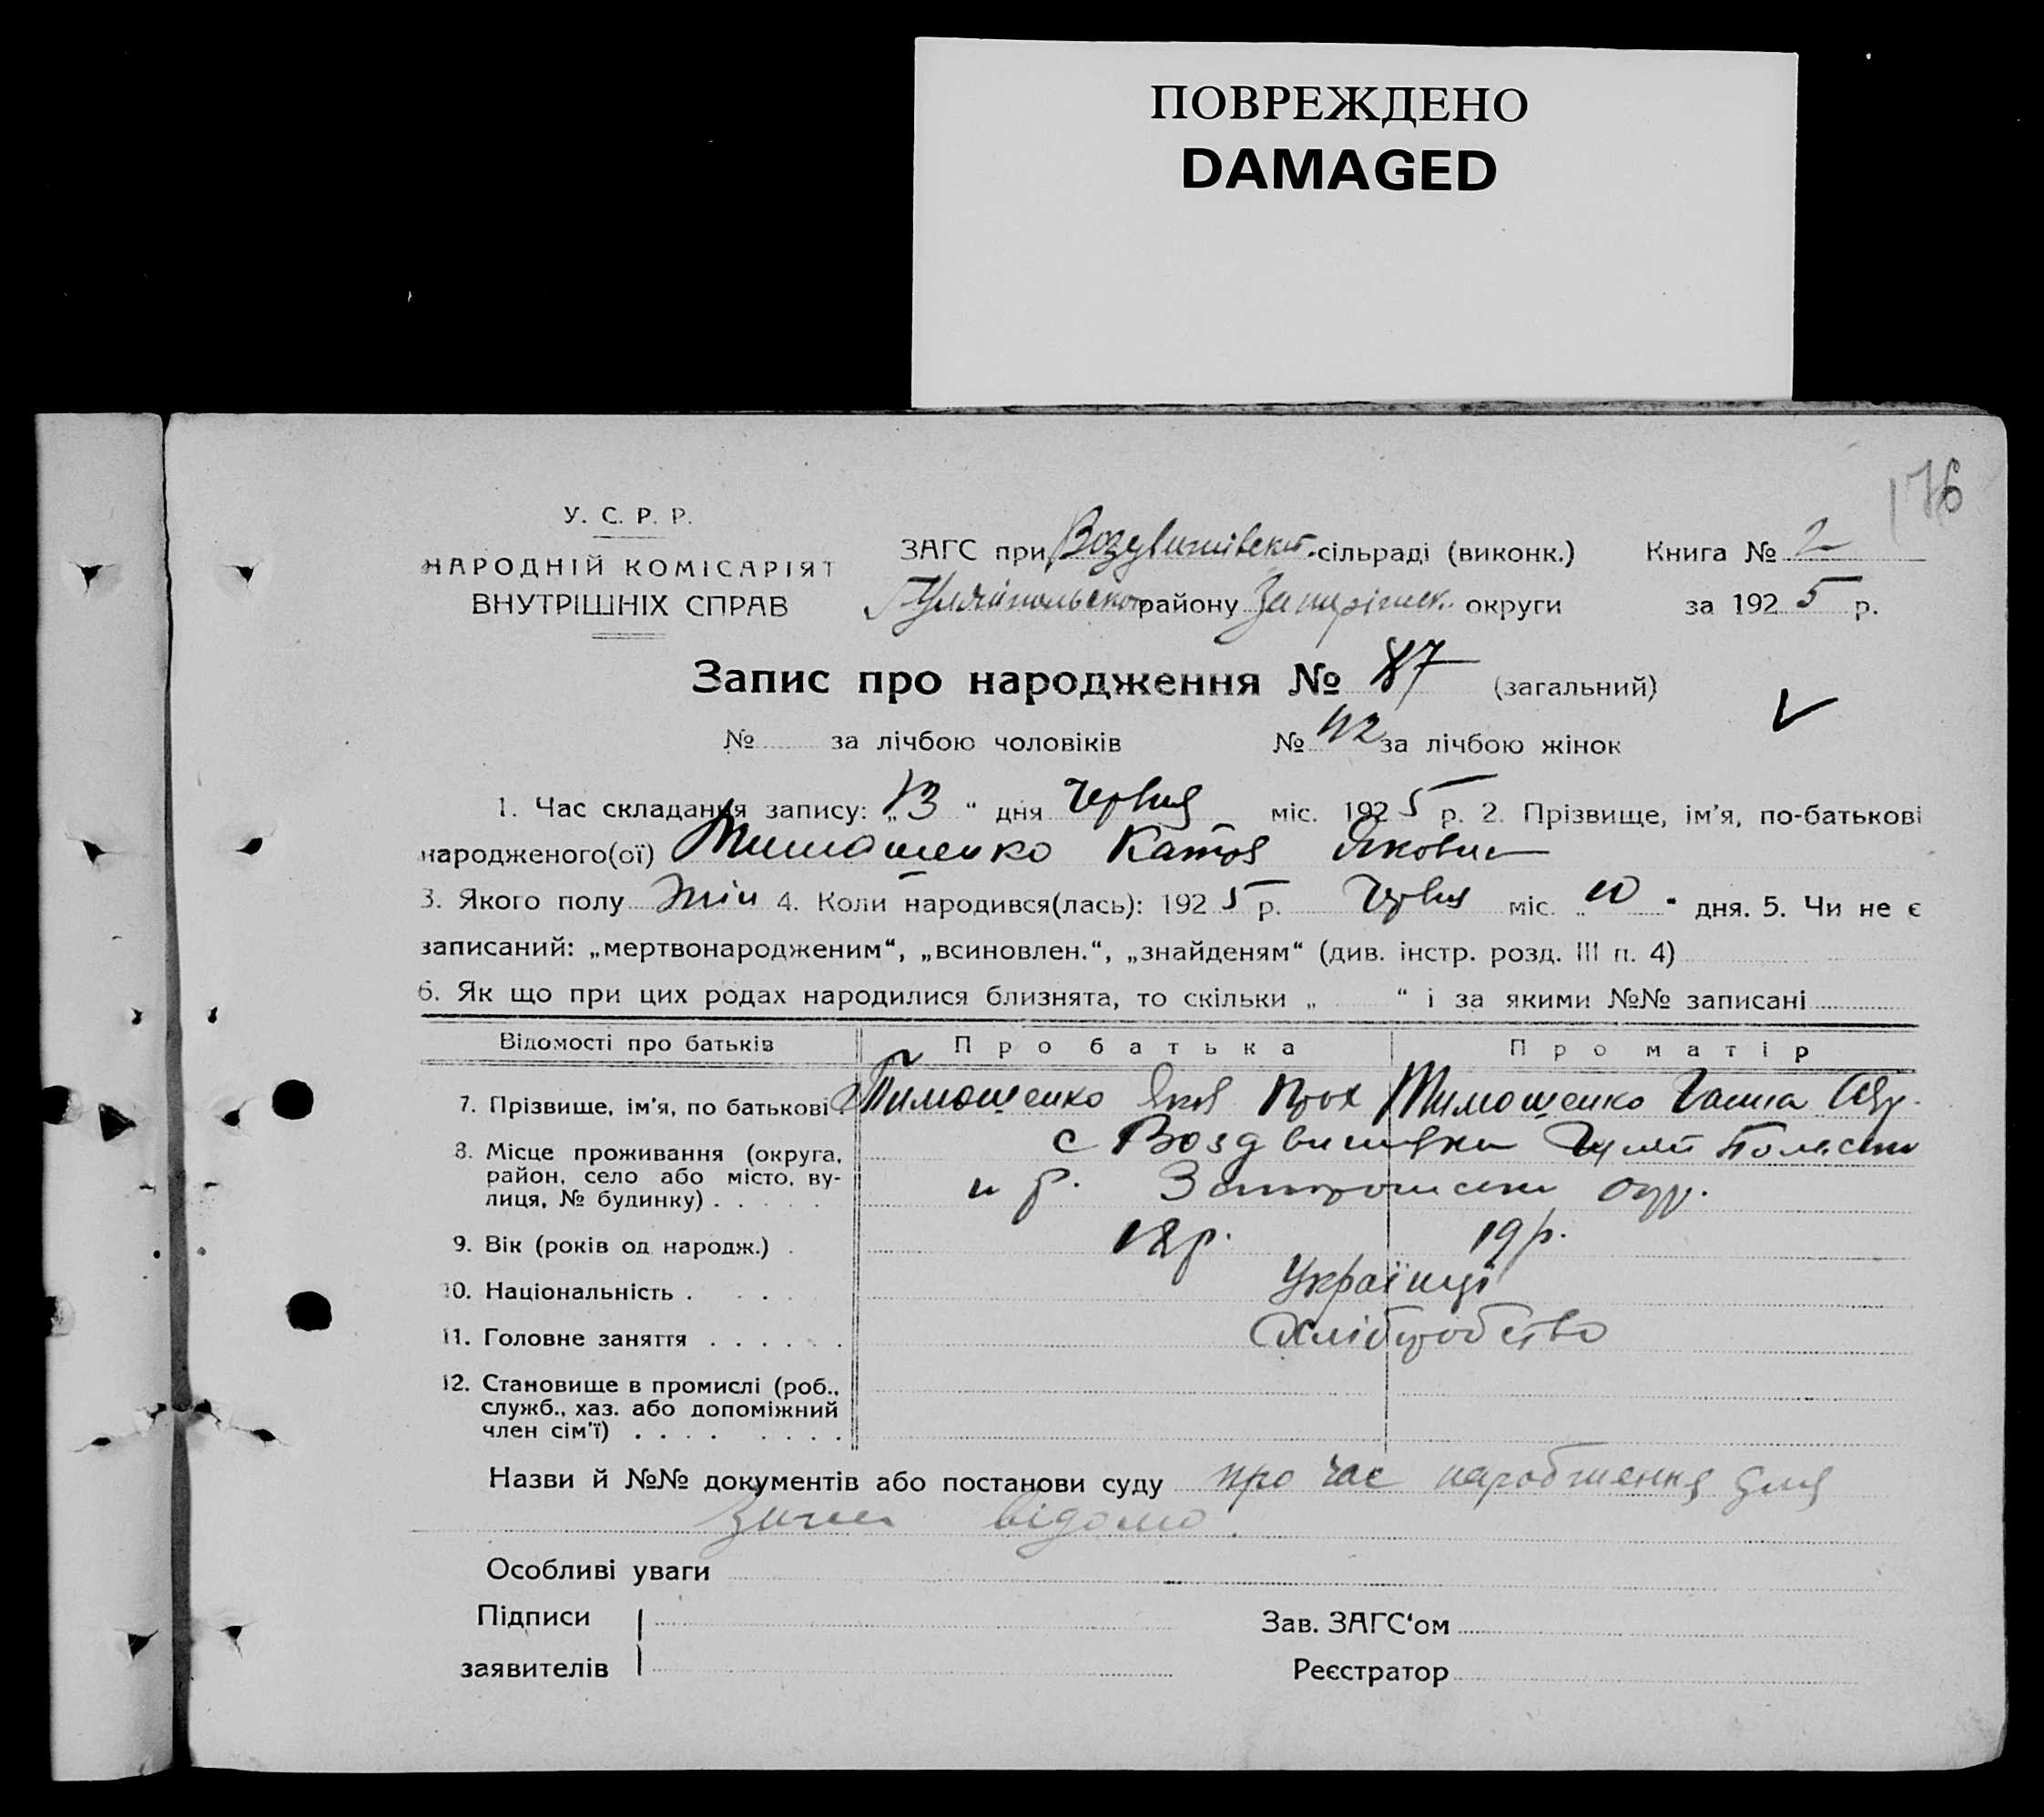 ПОВРЕЖДЕНО
DAMAGED
176
У. С. Р. Р.
НАРОДНІЙ КОМІСАРІЯТ
ВНУТРІШНІХ СПРАВ
ЗАГС при Воздвижівській сільраді (виконк.) Книга № 2
району Запоріжськ. округи за 1925 р.
Запис про народження № 87 (загальний)
№ за лічбою чоловіків № 42 за лічбою жінок
1. Час складання запису: „13“ дня червня міс. 1925 р. 2. Прізвище, ім'я, по-батькові
народженого(ої) Тимошенко Катря Яковл
3. Якого полу жін 4. Коли народився(лась): 1925 р. червня міс. „10“ дня. 5. Чи не є
записаний: „мертвонародженим“, „всиновлен.“, „знайденям“ (див. інстр. розд. III п. 4)
6. Як що при цих родах народилися близнята, то скільки „ “ і за якими №№ записані
Відомості про батьків Про батька Про матір
7. Прізвище, ім'я, по батькові Тимошенко Яков Прох Тимошенко Ганна
8. Місце проживання (округа, район, село або місто, вулиця, № будинку) . . . . . с Воздвижівки Гуляй Польськ
р. Запорожськ окр.
9. Вік (років од народж.) . 18р. 19р.
10. Національність . . . . Українці
11. Головне заняття . . . . . . Хліборобство
12. Становище в промислі (роб.,
служб., хаз. або допоміжний
член сім'ї) . . . . . . . .
Назви й №№ документів або постанови суду про час народження
відомо.
Особливі уваги
Підписи
заявителів
Зав. ЗАГС'ом
Реєстратор